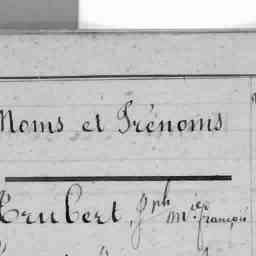 Noms et Prénoms
Trubert, Jph Mie François